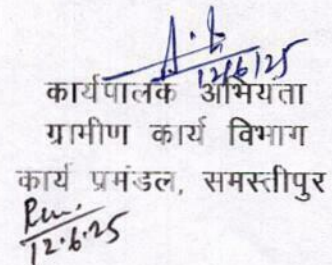 12/6/25
कार्यपालक अभियंता
ग्रामीण कार्य विभाग
कार्य प्रमंडल, समस्तीपुर
12.6.25